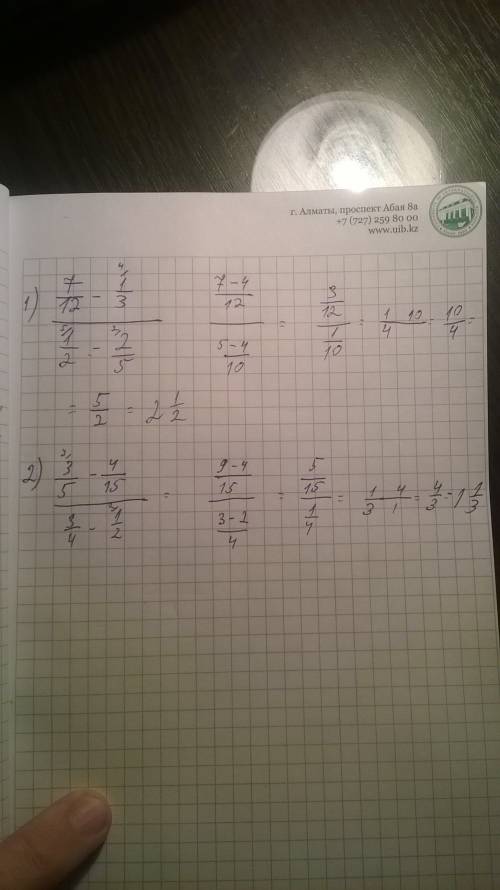 г. Алматы, проспект Абая 8а
+7 (727) 259 80 00
www.uib.kz
1) (7/12 - 1/3) / (1/2 - 2/5) = ((7-4)/12) / ((5-4)/10) = (3/12) / (1/10) = 1/4 · 10 = 10/4 =
= 5/2 = 2 1/2
2) (3/5 - 4/15) / (3/4 - 1/2) = ((9-4)/15) / ((3-2)/4) = (5/15) / (1/4) = 1/3 · 4/1 = 4/3 = 1 1/3